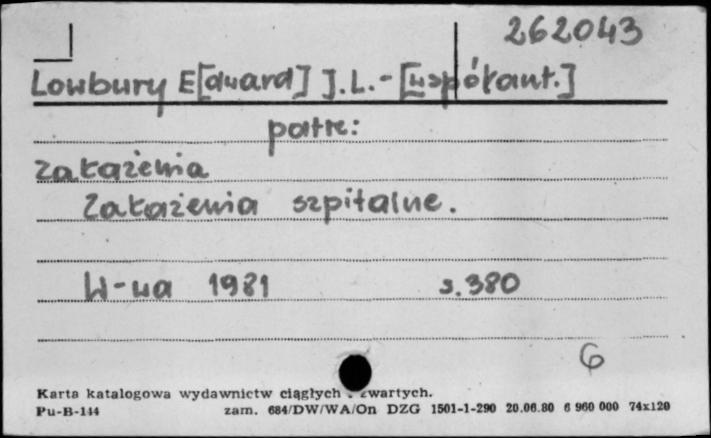 262043
Lowbury E[dward] J.L. - [współaut.]
patrz:
Zakażenia
Zakażenia szpitalne.
W-wa 1981 s. 380
6
Karta katalogowa wydawnictw ciągłych zwartych.
Pu-B-144 zam. 684/DW/WA/On DZG 1501-1-290 20.06.80 6 960 000 74x120